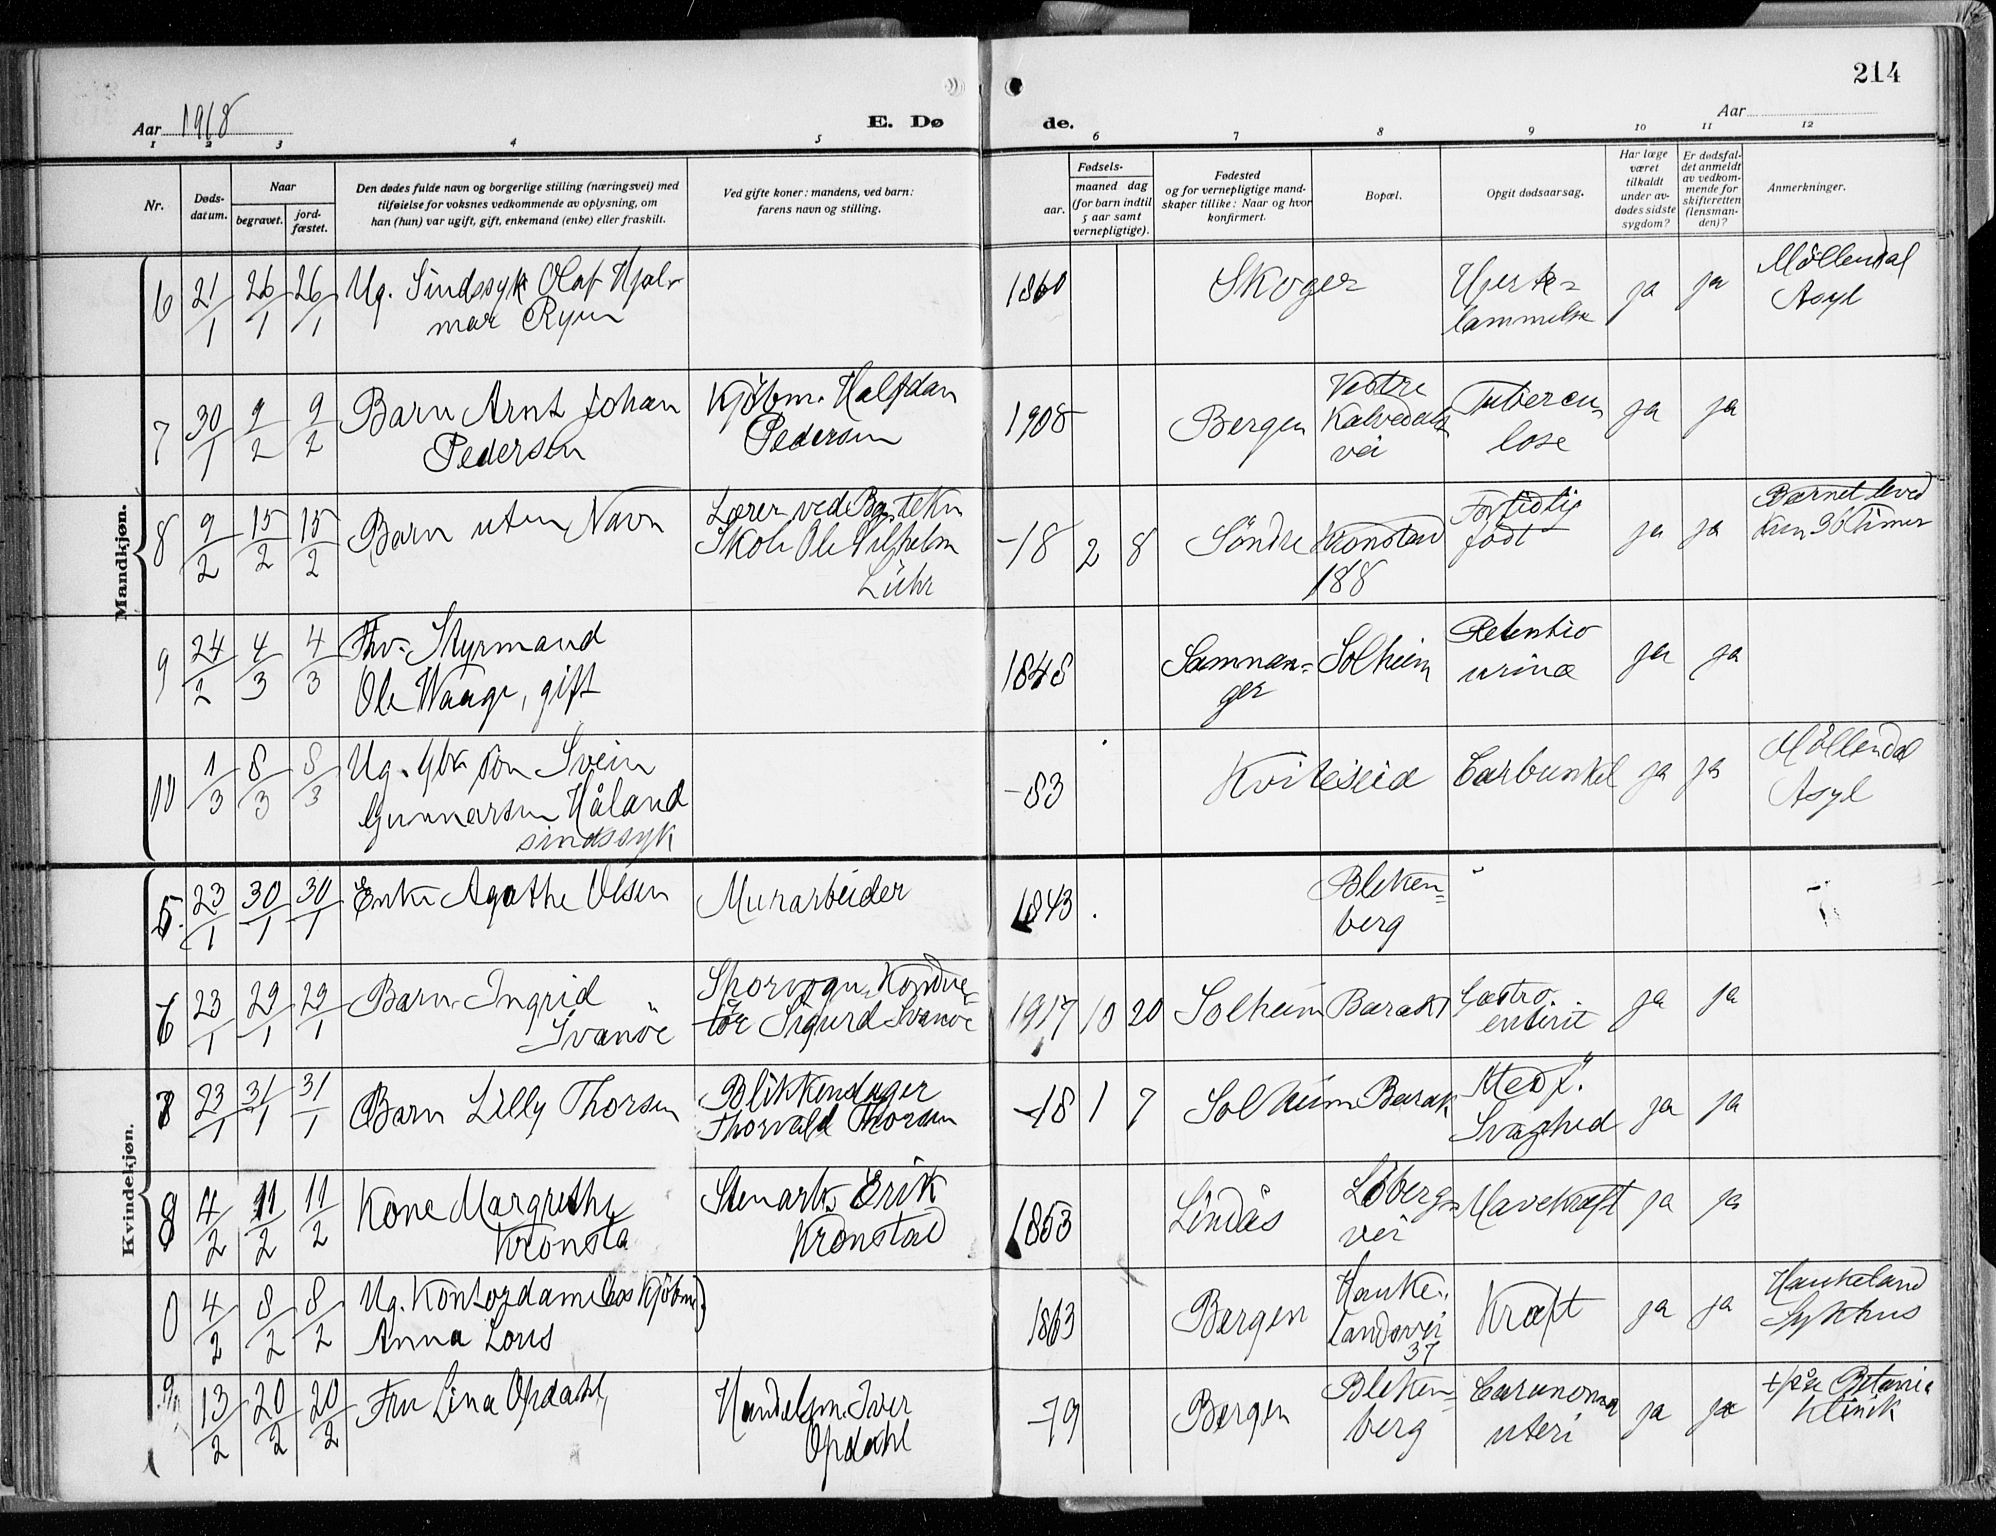 214
Aar 1918
E. Dø
de.
Aar
1 2 3 4 5 6 7 8 9 10 11 12
Nr.
Døds-
datum.
Naar
begravet.
jord-
fæstet.
Den dødes fulde navn og borgerlige stilling (næringsvei) med
tilføielse for voksnes vedkommende av oplysning, om
han (hun) var ugift, gift, enkemand (enke) eller fraskilt.
Ved gifte koner: mandens, ved barn:
farens navn og stilling.
Fødsels-
aar.
maaned dag
(for barn indtil
5 aar samt
vernepligtige).
Fødested
og for vernepligtige mand-
skaper tillike: Naar og hvor
konfirmert.
Bopæl.
Opgit dødsaarsag.
Har læge
været
tilkaldt
under av-
dødes sidste
sygdom?
Er dødsfal-
det anmeldt
av vedkom-
mende for
skifteretten
(lensman-
den)?
Anmerkninger.
Mandkjøn.
6 21/1 26/1 26/1 Ug. Sindssyk Olaf Hjal-
mar Ryen
1860 Skoger Hjerte-
lammelse ja ja Møllendal
Asyl
7 30/1 9/2 9/2 Barn Arnt Johan
Pedersen
Kjøbm. Halfdan
Pedersen
1908 Bergen Vestre
Kalvedals
vei Tubercu-
lose ja ja
8 9/2 15/2 15/2 Barn uten Navn
Lærer ved Be. tekn
Skole Ole Vilhelm
Lühr
-18 2 8 Søndre Kronstad
188 For tidlig
født ja ja Barnet leved
kun 36 timer
9 24/2 4/3 4/3 Fhv. Styrmand
Ole Waage, gift
1848 Samnan-
ger Solheim Retentio
urinæ ja ja
10 1/3 8/3 8/3 Ug. gbr søn Svein
Gunnarsen Håland
sindssyk
-83 Kviteseid Carbunkel ja ja Møllendal
Asyl
Kvindekjøn.
5. 23/1 30/1 30/1 Enke Agathe Olsen
Murarbeider
1843 Bleken-
berg
6 23/1 29/1 29/1 Barn Ingrid
Svanøe
Sporvogn-Konduc-
tör Sigurd Svanøe
1917 10 20 Solheim Barak Gastro
enterit ja ja
7 23/1 31/1 31/1 Barn Lilly Thorsen
Blikkenslager
Thorvald Thorsen
-18 1 7 Solheim Barak Med f.
Svaghed ja ja
8 4/2 11/2 11/2 Kone Margrethe
Kronsta
Stenarb. Erik
Kronstad
1853 Lindås Løbergs-
vei Mavekræft ja ja
4/2 8/2 8/2 Ug. Kontordame (hos Kjøbm.)
Anna Lous
1863 Bergen Hauke-
landsvei
37 Kræft ja ja Haukeland
Sykehus
13/2 20/2 20/2 Fru Lina Opdahl
Handelsm. Iver
Opdahl
-79 Bergen Bleken-
berg Carcinoma
uteri ja ja † på Betania
Klinik